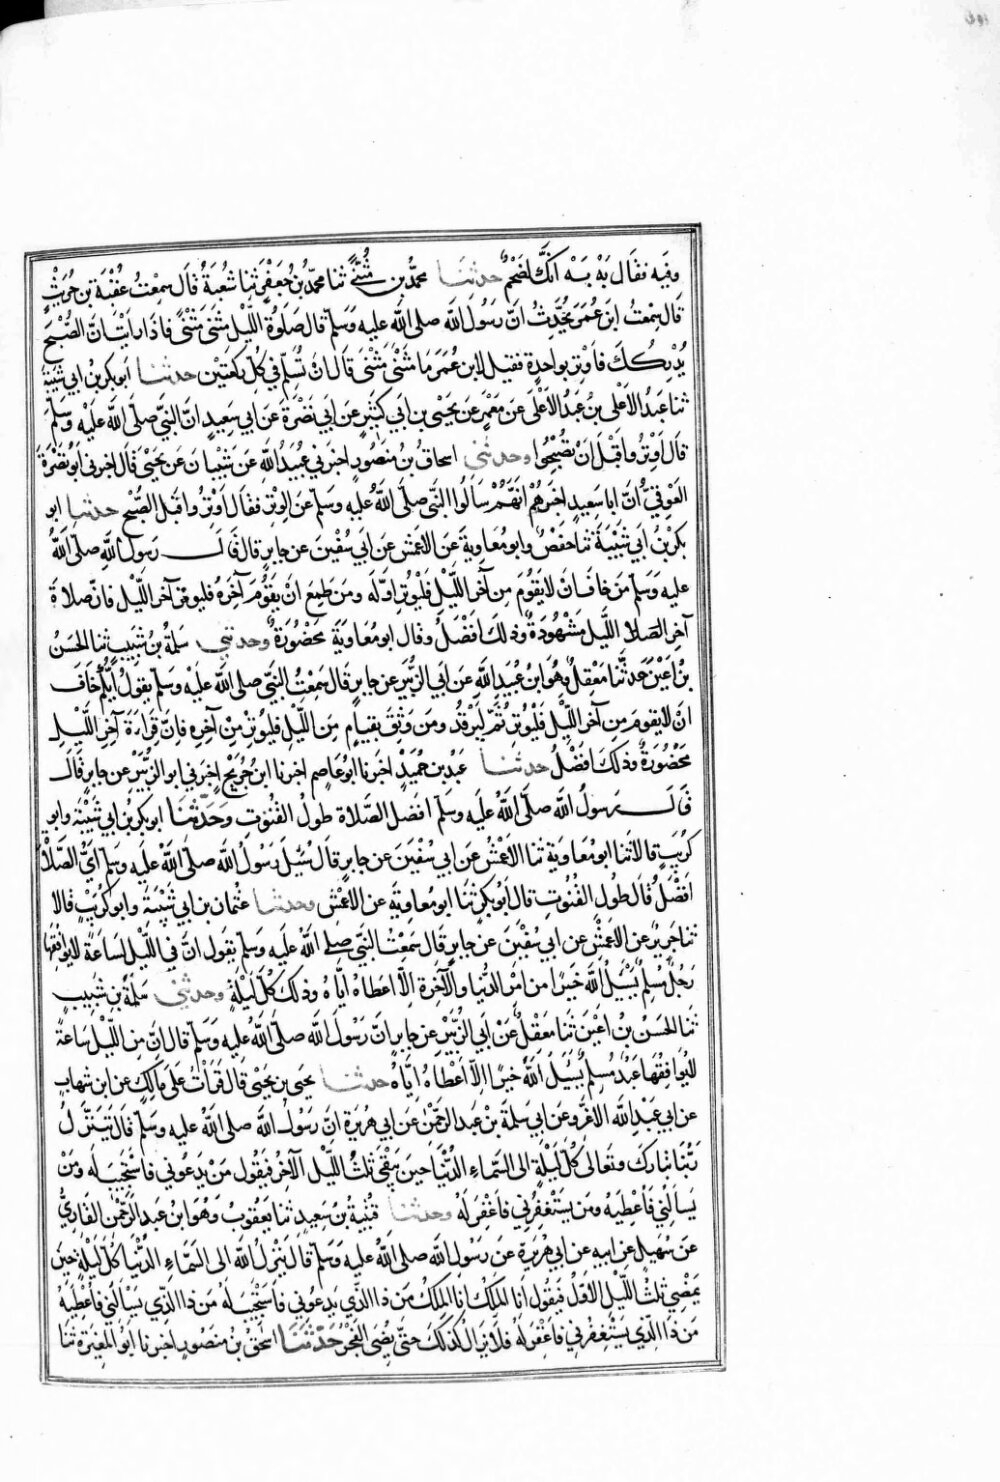 وفيه فقال به به انك لضخم حدثنا محمد بن مثنى ثنا محمد بن جعفر ثنا شعبة قال سمعت عقبة بن حريث
قال سمعت ابن عمر يحدث ان رسول الله صلى الله عليه وسلم قال صلوة الليل مثنى مثنى فاذا رايت ان الصبح
يدركك فاوتر بواحدة فقيل لابن عمر ما مثنى مثنى قال ان تسلم في كل ركعتين حدثنا ابو بكر بن ابي شيبة
ثنا عبد الاعلى بن عبد الاعلى عن معمر عن يحيى بن ابي كثير عن ابي نضرة عن ابي سعيد ان النبي صلى الله عليه وسلم
قال اوتروا قبل ان تصبحوا وحدثني اسحاق بن منصور اخبرني عبيد الله عن شيبان عن يحيى قال اخبرني ابو نضرة
العوقي ان ابا سعيد اخبرهم انهم سالوا النبي صلى الله عليه وسلم عن الوتر فقال اوتروا قبل الصبح حدثنا ابو
بكر بن ابي شيبة ثنا حفص وابو معاوية عن الاعمش عن ابي سفين عن جابر قال قال رسول الله صلى الله
عليه وسلم من خاف ان لا يقوم من آخر الليل فليوتر اوله ومن طمع ان يقوم آخره فليوتر آخر الليل فان صلاة
آخر الصلا الليل مشهودة وذلك افضل وقال ابو معاوية محضورة وحدثني سلمة بن شبيب ثنا الحسن
بن اعين حدثنا معقل وهو ابن عبيد الله عن ابي الزبير عن جابر قال سمعت النبي صلى الله عليه وسلم يقول ايكم خاف
ان لا يقوم من آخر الليل فليوتر ثم ليرقد ومن وثق بقيام من الليل فليوتر من آخره فان قراءة آخر الليل
محضورة وذلك افضل حدثنا عبد بن حميد اخبرنا ابو عاصم اخبرنا ابن جريج اخبرني ابو الزبير عن جابر قال
قال رسول الله صلى الله عليه وسلم افضل الصلاة طول القنوت وحدثنا ابو بكر بن ابي شيبة وابو
كريب قالا ثنا ابو معاوية ثنا الاعمش عن ابي سفين عن جابر قال سئل رسول الله صلى الله عليه وسلم اي الصلاة
افضل قال طول القنوت قال ابو بكر ثنا ابو معاوية عن الاعمش وحدثنا عثمان بن ابي شيبة وابو كريب قالا
ثنا جرير عن الاعمش عن ابي سفين عن جابر قال سمعت النبي صلى الله عليه وسلم يقول ان في الليل لساعة لا يوافقها
رجل مسلم يسئل الله خيرا من امر الدنيا والآخرة الا اعطاه اياه وذلك كل ليلة وحدثني سلمة بن شبيب
ثنا الحسن بن اعين ثنا معقل عن ابي الزبير عن جابر ان رسول الله صلى الله عليه وسلم قال ان من الليل ساعة
لا يوافقها عبد مسلم يسئل الله خيرا الا اعطاه اياه حدثنا يحيى بن يحيى قال قرات على مالك عن ابن شهاب
عن ابي عبد الله الاغر وعن ابي سلمة بن عبد الرحمن عن ابي هريرة ان رسول الله صلى الله عليه وسلم قال يتنزل
ربنا تبارك وتعالى كل ليلة الى السماء الدنيا حين يبقى ثلث الليل الآخر فيقول من يدعوني فاستجيب له ومن
يسالني فاعطيه ومن يستغفرني فاغفر له وحدثنا قتيبة بن سعيد ثنا يعقوب وهو ابن عبد الرحمن القاري
عن سهيل عن ابيه عن ابي هريرة عن رسول الله صلى الله عليه وسلم قال ينزل الله الى السماء الدنيا كل ليلة حين
يمضي ثلث الليل الاول فيقول انا الملك انا الملك من ذا الذي يدعوني فاستجيب له من ذا الذي يسالني فاعطيه
من ذا الذي يستغفرني فاغفر له فلا يزال كذلك حتى يضى الفجر حدثنا اسحق بن منصور اخبرنا ابو المغيرة ثنا